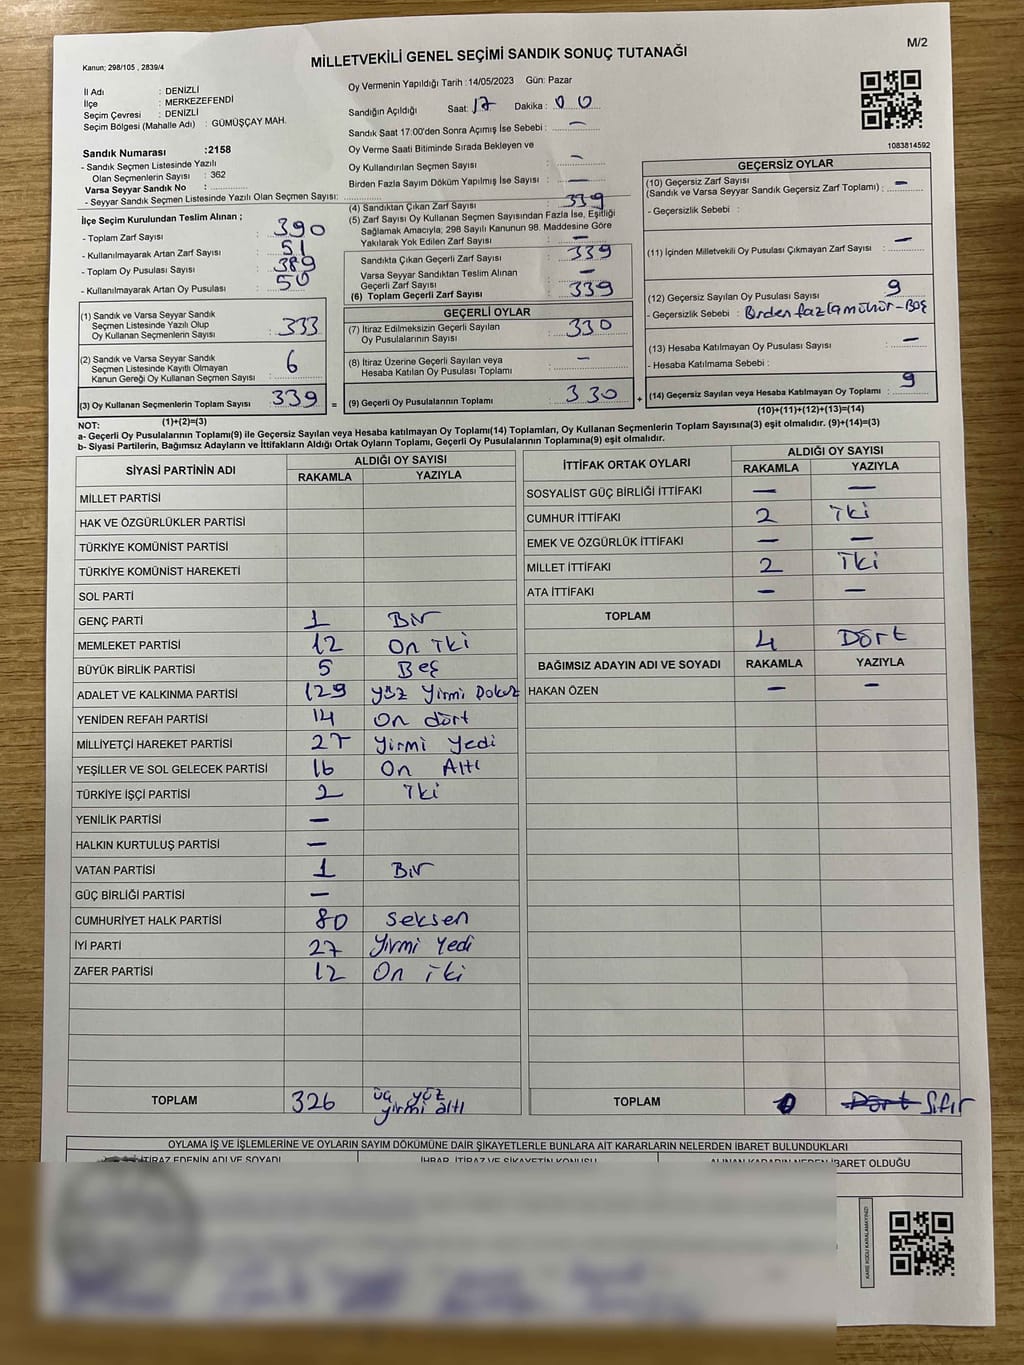 M/2
MİLLETVEKİLİ GENEL SEÇİMİ SANDIK SONUÇ TUTANAĞI
Kanun; 298/105 , 2839/4
İl Adı : DENİZLİ
İlçe : MERKEZEFENDİ
Seçim Çevresi : DENİZLİ
Seçim Bölgesi (Mahalle Adı) : GÜMÜŞÇAY MAH.
Sandık Numarası :2158
- Sandık Seçmen Listesinde Yazılı
Olan Seçmenlerin Sayısı : 362
Varsa Seyyar Sandık No :
- Seyyar Sandık Seçmen Listesinde Yazılı Olan Seçmen Sayısı:
Oy Vermenin Yapıldığı Tarih : 14/05/2023 Gün: Pazar
Sandığın Açıldığı Saat: 17 Dakika : 00
Sandık Saat 17:00'den Sonra Açımış İse Sebebi : —
Oy Verme Saati Bitiminde Sırada Bekleyen ve
Oy Kullandırılan Seçmen Sayısı : —
Birden Fazla Sayım Döküm Yapılmış İse Sayısı : —
1083814592
İlçe Seçim Kurulundan Teslim Alınan ;
- Toplam Zarf Sayısı : 390
- Kullanılmayarak Artan Zarf Sayısı : 51
- Toplam Oy Pusulası Sayısı : 389
- Kullanılmayarak Artan Oy Pusulası : 50
(1) Sandık ve Varsa Seyyar Sandık
Seçmen Listesinde Yazılı Olup
Oy Kullanan Seçmenlerin Sayısı : 333
(2) Sandık ve Varsa Seyyar Sandık
Seçmen Listesinde Kayıtlı Olmayan
Kanun Gereği Oy Kullanan Seçmen Sayısı : 6
(3) Oy Kullanan Seçmenlerin Toplam Sayısı : 339 =
(1)+(2)=(3)
(4) Sandıktan Çıkan Zarf Sayısı : 339
(5) Zarf Sayısı Oy Kullanan Seçmen Sayısından Fazla İse, Eşitliği
Sağlamak Amacıyla; 298 Sayılı Kanunun 98. Maddesine Göre
Yakılarak Yok Edilen Zarf Sayısı : —
Sandıkta Çıkan Geçerli Zarf Sayısı : 339
Varsa Seyyar Sandıktan Teslim Alınan
Geçerli Zarf Sayısı : —
(6) Toplam Geçerli Zarf Sayısı : 339
GEÇERLİ OYLAR
(7) İtiraz Edilmeksizin Geçerli Sayılan
Oy Pusulalarının Sayısı : 330
(8) İtiraz Üzerine Geçerli Sayılan veya
Hesaba Katılan Oy Pusulası Toplamı : —
(9) Geçerli Oy Pusulalarının Toplamı : 330 +
GEÇERSİZ OYLAR
(10) Geçersiz Zarf Sayısı
(Sandık ve Varsa Seyyar Sandık Geçersiz Zarf Toplamı) : —
- Geçersizlik Sebebi :
(11) İçinden Milletvekili Oy Pusulası Çıkmayan Zarf Sayısı : —
(12) Geçersiz Sayılan Oy Pusulası Sayısı : 9
- Geçersizlik Sebebi : Birden fazla mühür - Boş
(13) Hesaba Katılmayan Oy Pusulası Sayısı : —
- Hesaba Katılmama Sebebi :
(14) Geçersiz Sayılan veya Hesaba Katılmayan Oy Toplamı : 9
(10)+(11)+(12)+(13)=(14)
NOT:
a- Geçerli Oy Pusulalarının Toplamı(9) ile Geçersiz Sayılan veya Hesaba katılmayan Oy Toplamı(14) Toplamları, Oy Kullanan Seçmenlerin Toplam Sayısına(3) eşit olmalıdır. (9)+(14)=(3)
b- Siyasi Partilerin, Bağımsız Adayların ve İttifakların Aldığı Ortak Oyların Toplamı, Geçerli Oy Pusulalarının Toplamına(9) eşit olmalıdır.
SİYASİ PARTİNİN ADI ALDIĞI OY SAYISI
RAKAMLA YAZIYLA
MİLLET PARTİSİ
HAK VE ÖZGÜRLÜKLER PARTİSİ
TÜRKİYE KOMÜNİST PARTİSİ
TÜRKİYE KOMÜNİST HAREKETİ
SOL PARTİ
GENÇ PARTİ 1 Bir
MEMLEKET PARTİSİ 12 On iki
BÜYÜK BİRLİK PARTİSİ 5 Beş
ADALET VE KALKINMA PARTİSİ 129 yüz yirmi Dokuz
YENİDEN REFAH PARTİSİ 14 On dört
MİLLİYETÇİ HAREKET PARTİSİ 27 yirmi yedi
YEŞİLLER VE SOL GELECEK PARTİSİ 16 On Altı
TÜRKİYE İŞÇİ PARTİSİ 2 iki
YENİLİK PARTİSİ —
HALKIN KURTULUŞ PARTİSİ —
VATAN PARTİSİ 1 Bir
GÜÇ BİRLİĞİ PARTİSİ —
CUMHURİYET HALK PARTİSİ 80 Seksen
İYİ PARTİ 27 Yirmi Yedi
ZAFER PARTİSİ 12 On iki
TOPLAM 326 üç yüz
yirmi altı
İTTİFAK ORTAK OYLARI ALDIĞI OY SAYISI
RAKAMLA YAZIYLA
SOSYALİST GÜÇ BİRLİĞİ İTTİFAKI — —
CUMHUR İTTİFAKI 2 iki
EMEK VE ÖZGÜRLÜK İTTİFAKI — —
MİLLET İTTİFAKI 2 iki
ATA İTTİFAKI — —
TOPLAM 4 Dört
BAĞIMSIZ ADAYIN ADI VE SOYADI RAKAMLA YAZIYLA
HAKAN ÖZEN — —
TOPLAM 0 Dört Sıfır
OYLAMA İŞ VE İŞLEMLERİNE VE OYLARIN SAYIM DÖKÜMÜNE DAİR ŞİKAYETLERLE BUNLARA AİT KARARLARIN NELERDEN İBARET BULUNDUKLARI
İTİRAZ EDENİN ADI VE SOYADI İHBAR, İTİRAZ VE ŞİKAYETİN KONUSU ALINAN KARARIN NEDEN İBARET OLDUĞU
KARE KODU KARALAMAYINIZ!